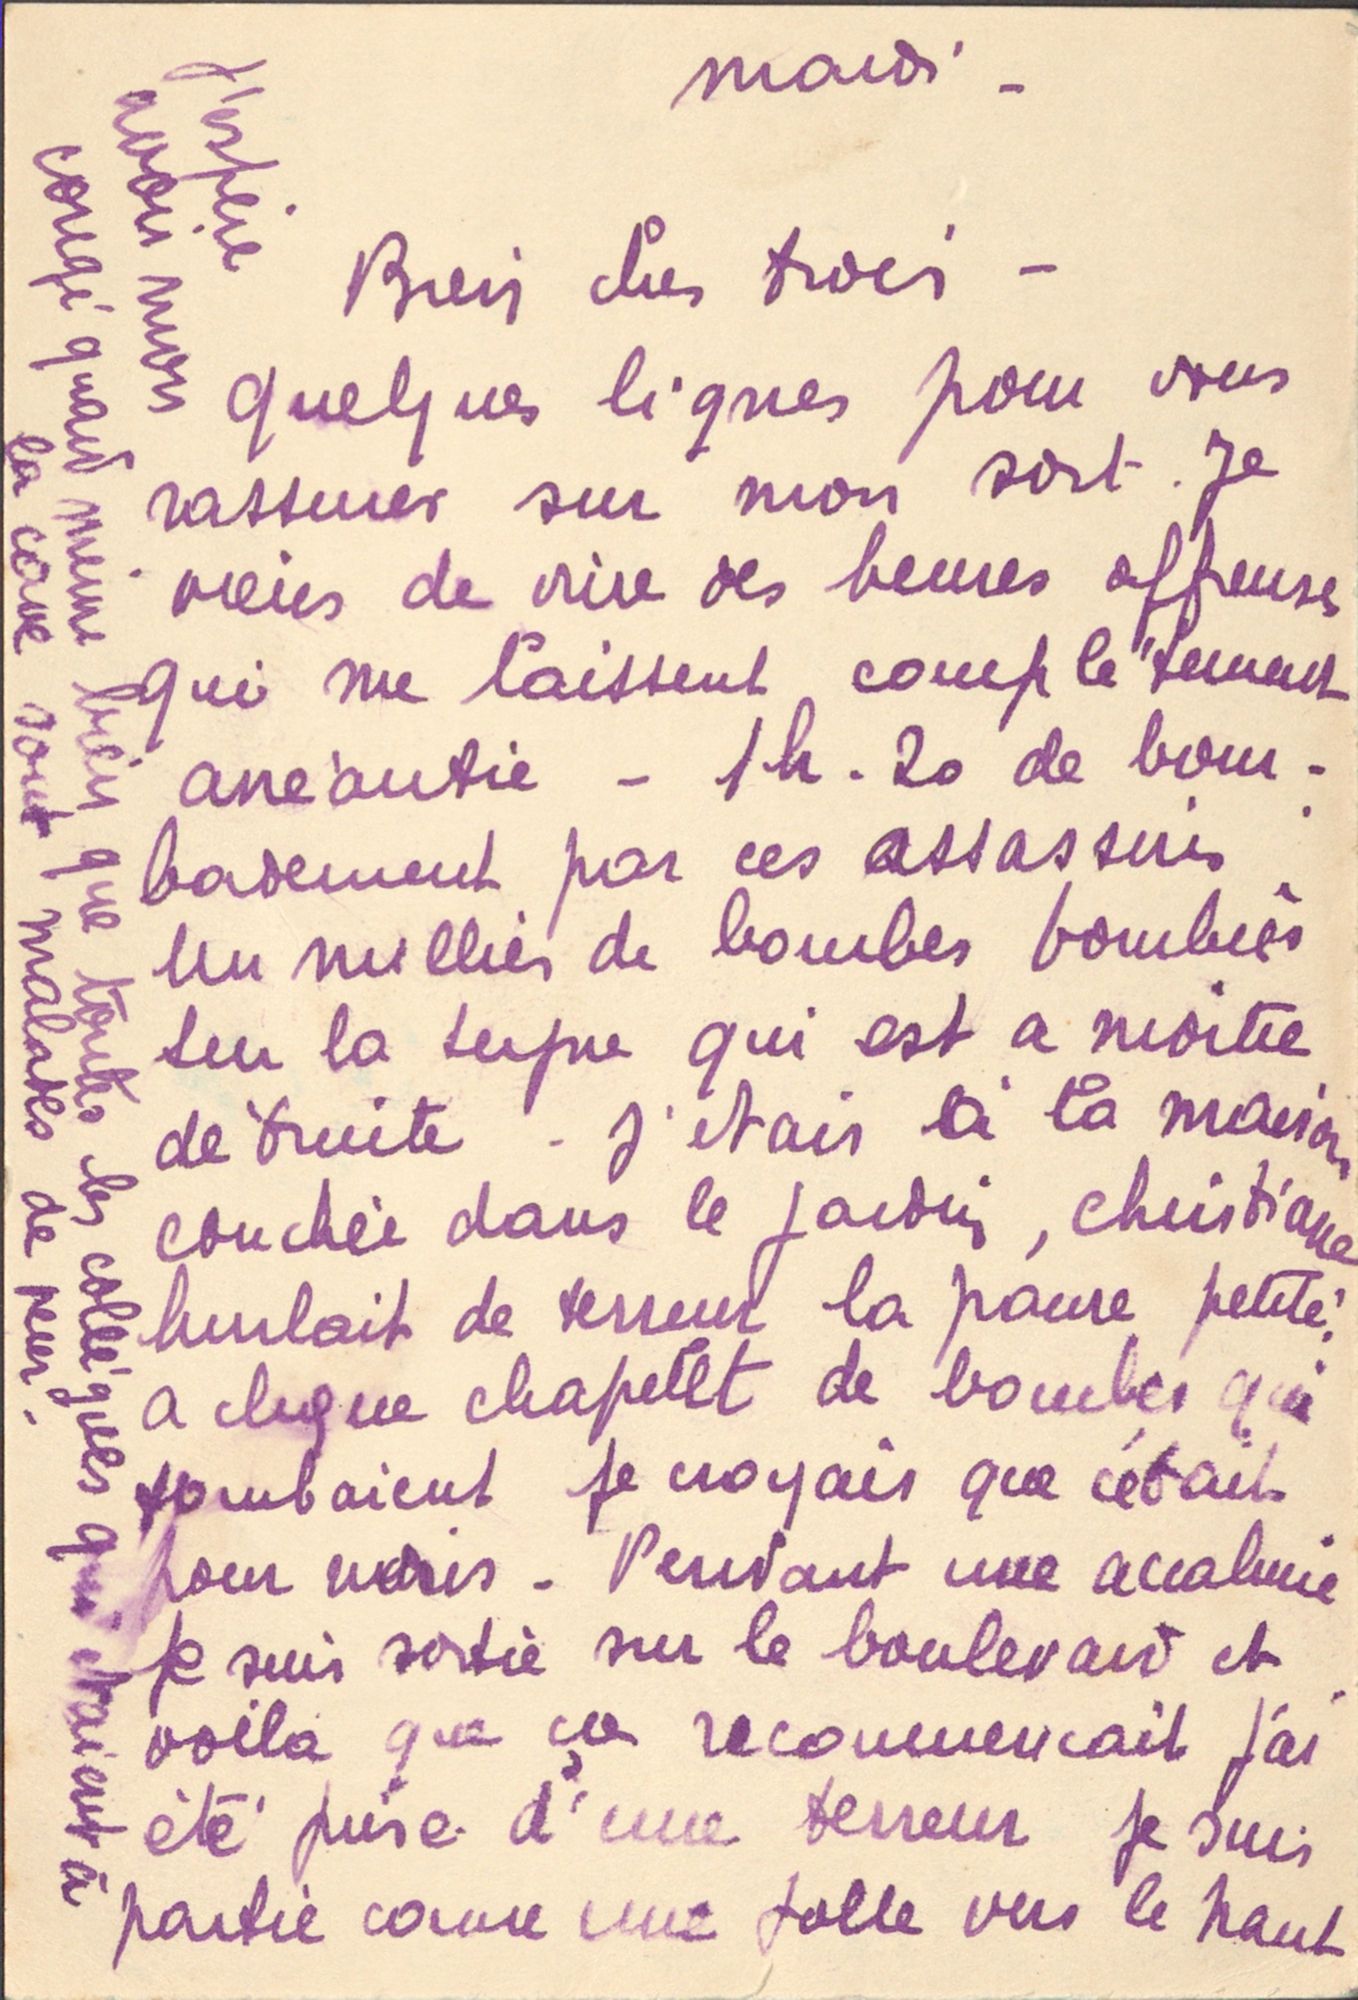 mardi -
Bien chers trois -
Quelques lignes pour vous
rassurer sur mon sort. Je
viens de vivre des heures affreuses
qui me laissent complétement
anéantie - 1h.20 de bom-
bardement par ces assassins.
Un millier de bombes tombées
sur la qui est a moitie
détruite - J'étais à la maison
couchée dans le jardin, Christiane
hurlait de terreur la pauvre petite.
A chaque chapelet de bombes qui
tombaient je croyais que c'était
pour nous - Pendant une accalmie
je suis sortie sur le boulevard et
voila que ça recommencait j'ai
été prise d'une terreur je suis
partie comme une folle vers le haut
J'espère
avoir mon
congé quand même bien que toutes les collégues qui étaient à
la cave sont malades de peur.